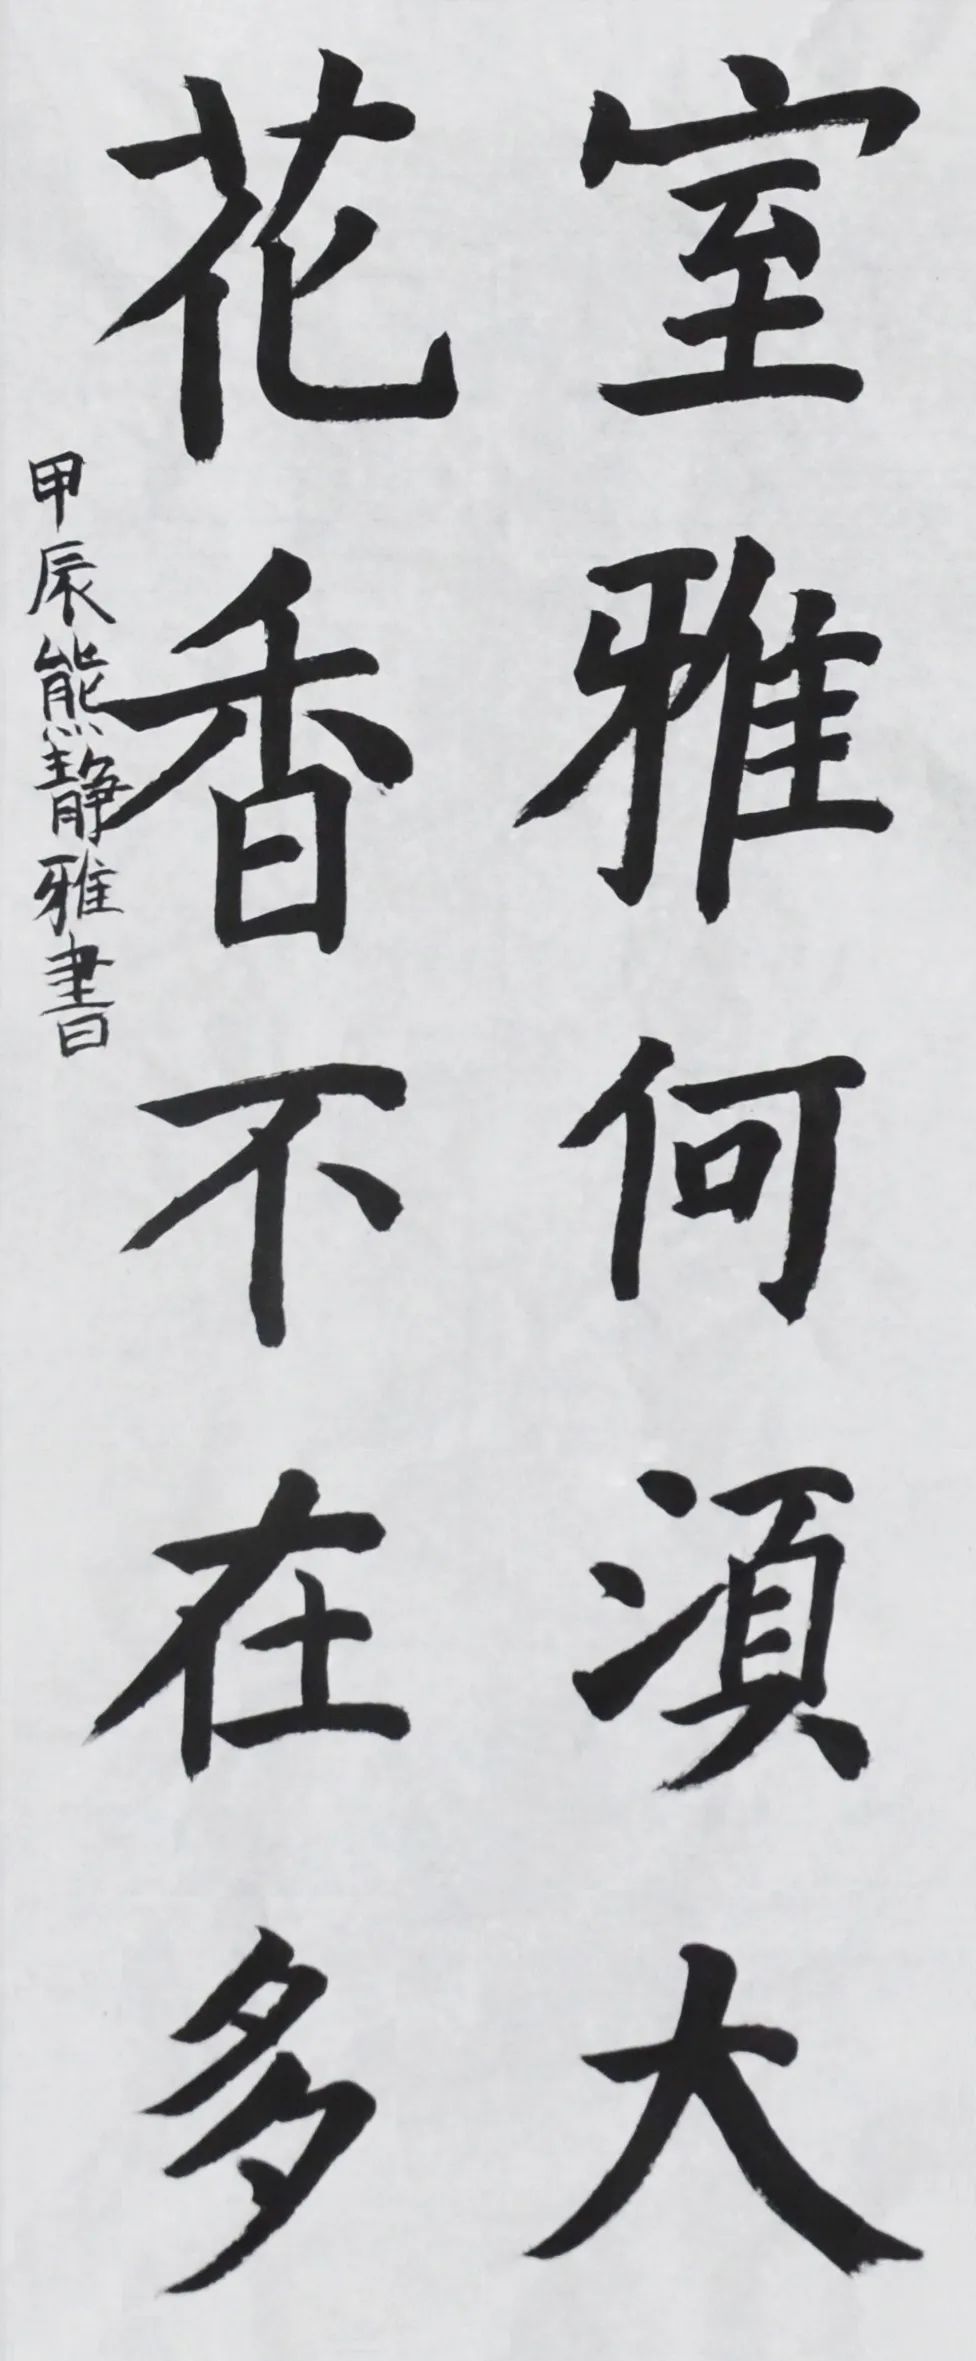 室雅何須大
花香不在多
甲辰熊靜雅書